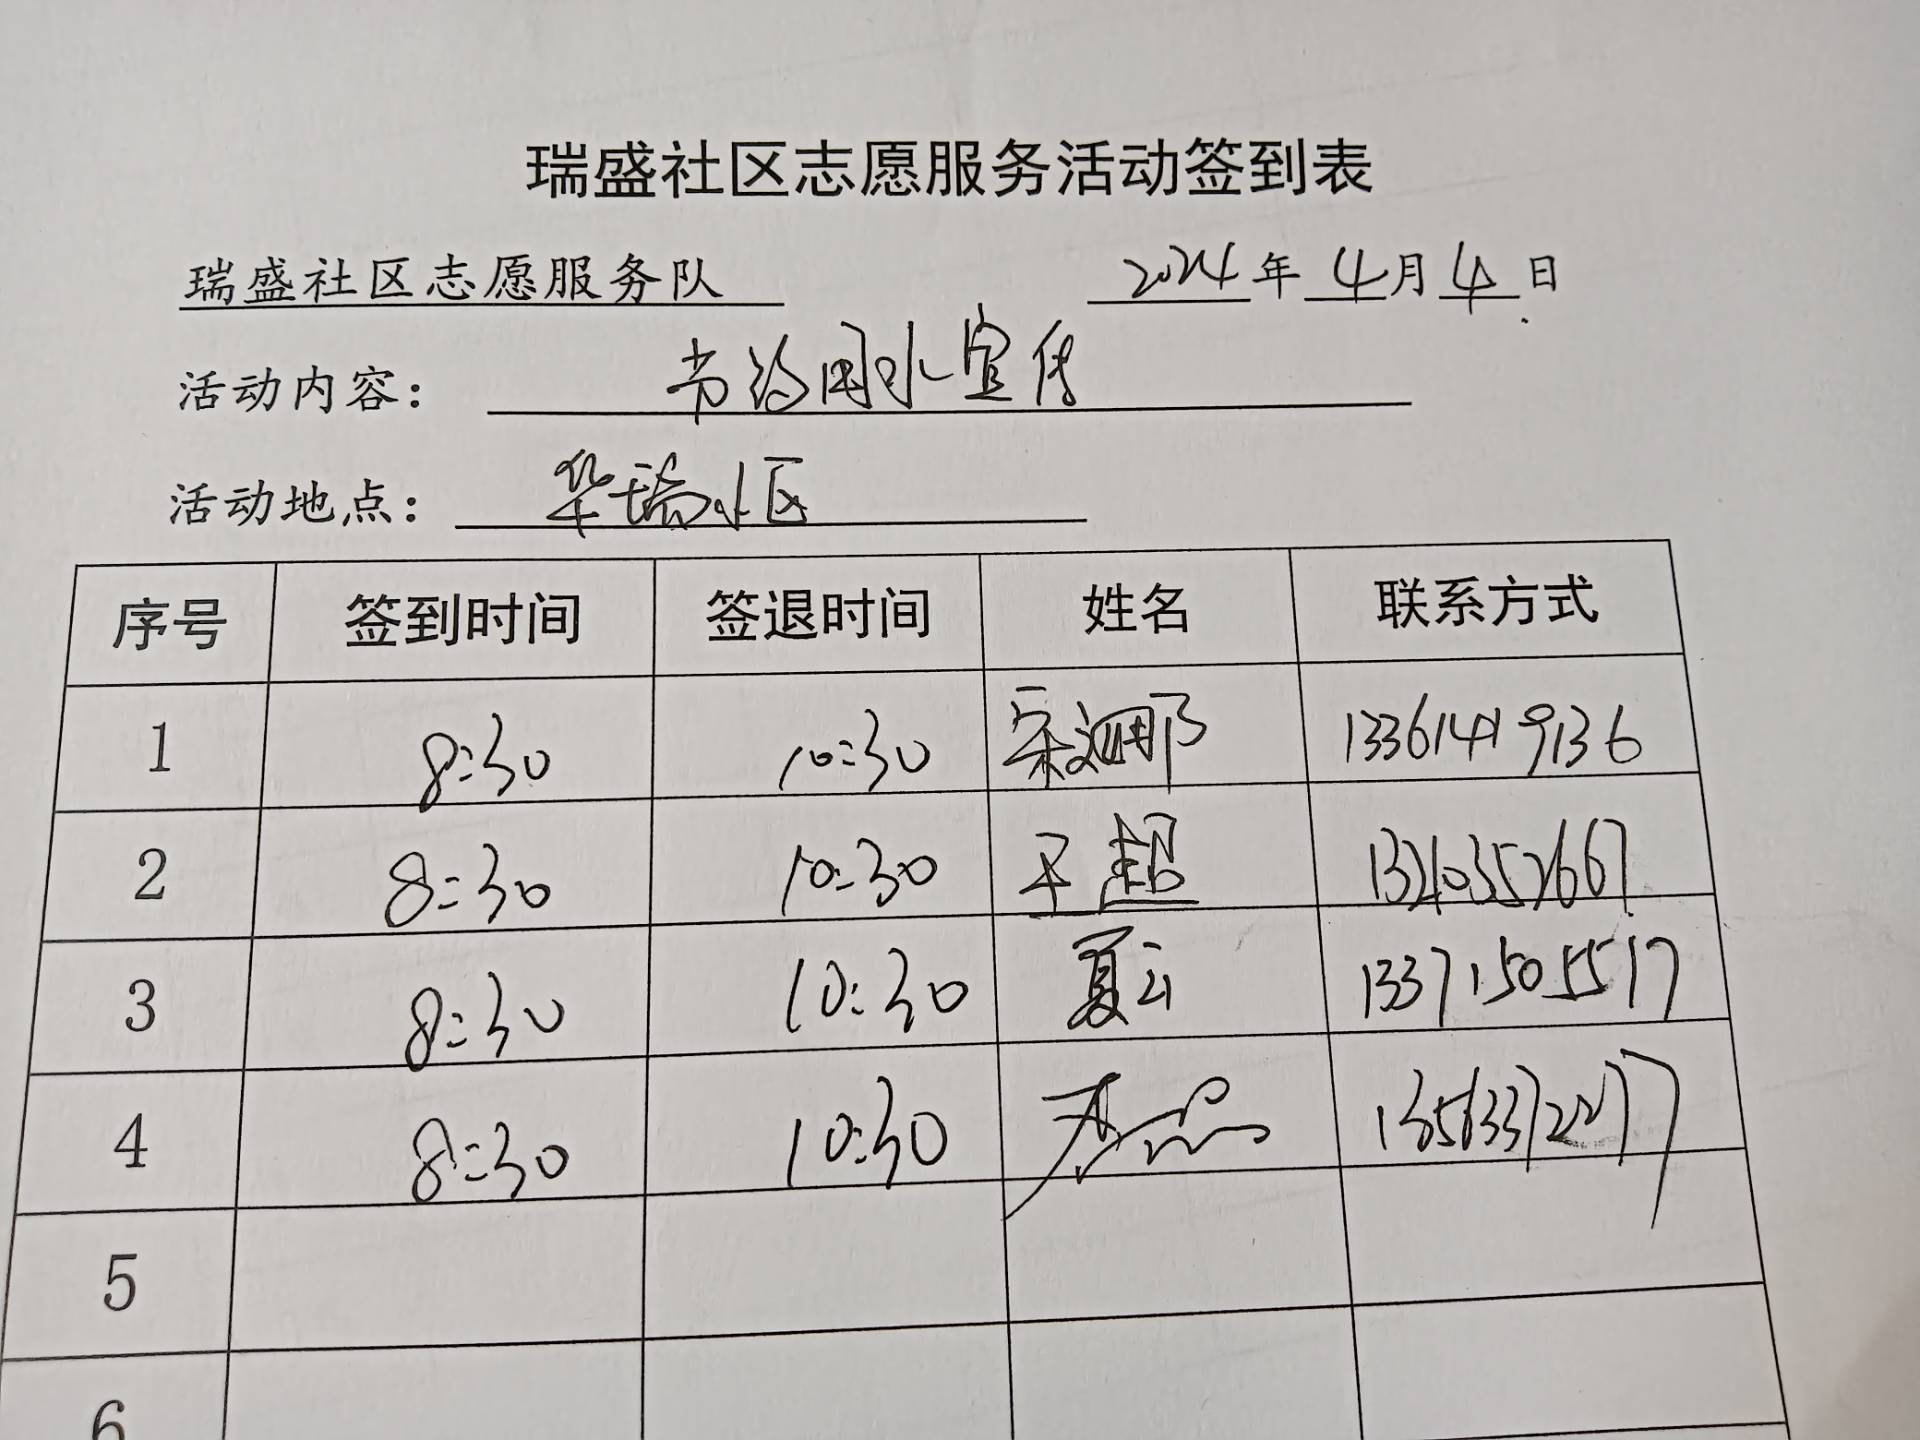 瑞盛社区志愿服务活动签到表
瑞盛社区志愿服务队 2024年 4月 4日
活动内容： 节约用水宣传
活动地点： 华瑞小区
序号 签到时间 签退时间 姓名 联系方式
1 8:30 10:30 13361419136
2 8:30 10:30 13210352667
3 8:30 10:30 夏云 13371505517
4 8:30 10:30
5
6